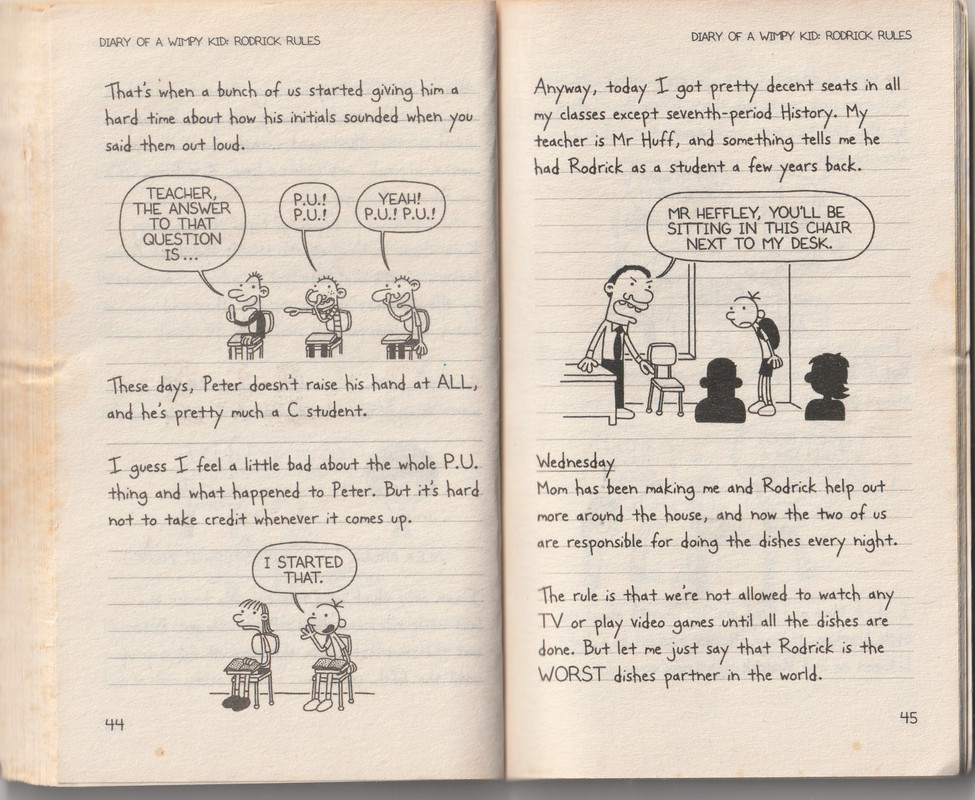 DIARY OF A WIMPY KID: RODRICK RULES
That's when a bunch of us started giving him a
hard time about how his initials sounded when you
said them out loud.
TEACHER,
THE ANSWER
TO THAT
QUESTION
IS...
P.U.!
P.U.!
YEAH!
P.U.! P.U.!
These days, Peter doesn't raise his hand at ALL,
and he's pretty much a C student.
I guess I feel a little bad about the whole P.U.
thing and what happened to Peter. But it's hard
not to take credit whenever it comes up.
I STARTED
THAT.
44
DIARY OF A WIMPY KID: RODRICK RULES
Anyway, today I got pretty decent seats in all
my classes except seventh-period History. My
teacher is Mr Huff, and something tells me he
had Rodrick as a student a few years back.
MR HEFFLEY, YOU'LL BE
SITTING IN THIS CHAIR
NEXT TO MY DESK.
Wednesday
Mom has been making me and Rodrick help out
more around the house, and now the two of us
are responsible for doing the dishes every night.
The rule is that we're not allowed to watch any
TV or play video games until all the dishes are
done. But let me just say that Rodrick is the
WORST dishes partner in the world.
45